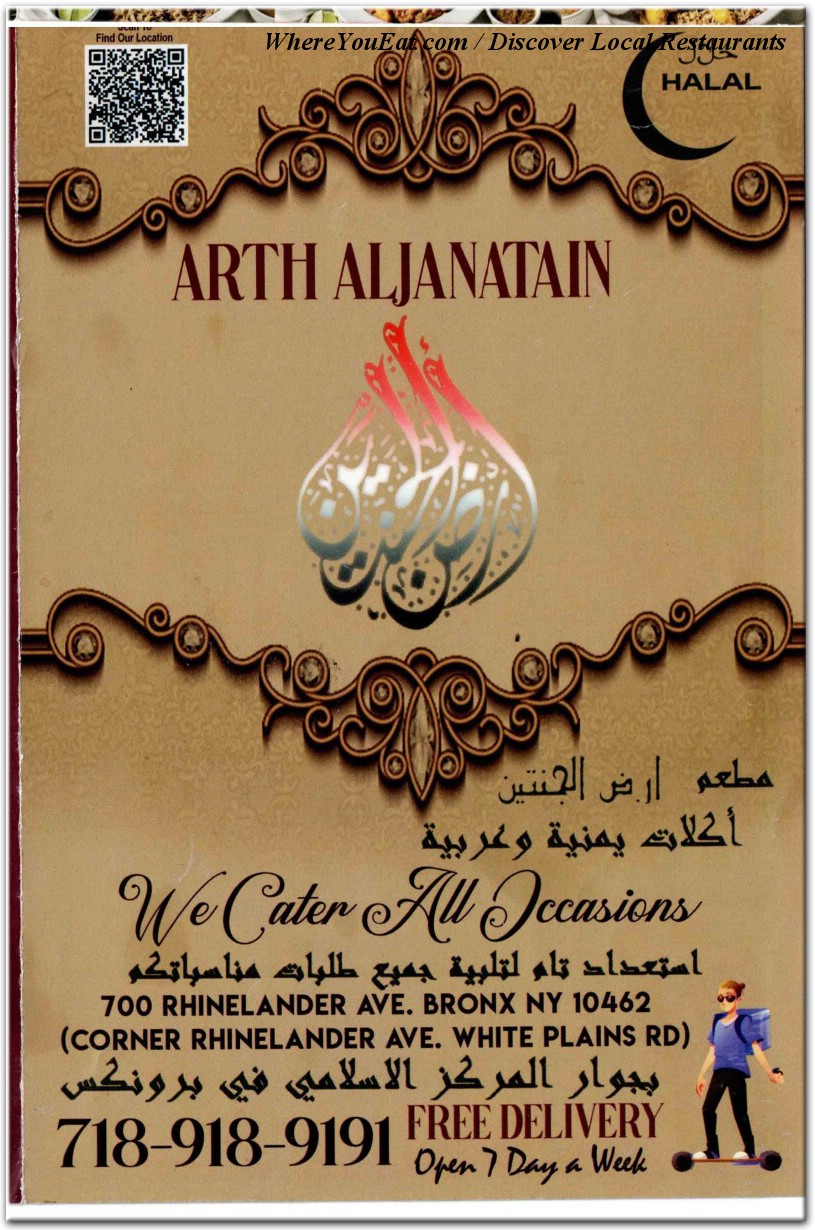 Scan To
Find Our Location
WhereYouEat.com / Discover Local Restaurants
حلال
HALAL
ARTH ALJANATAIN
أرض الجنتين
مطعم ارض الجنتين
أكلات يمنية وعربية
We Cater All Occasions
استعداد تام لتلبية جميع طلبات مناسباتكم
700 RHINELANDER AVE. BRONX NY 10462
(CORNER RHINELANDER AVE. WHITE PLAINS RD)
بجوار المركز الاسلامي في برونكس
718-918-9191
FREE DELIVERY
Open 7 Day a Week